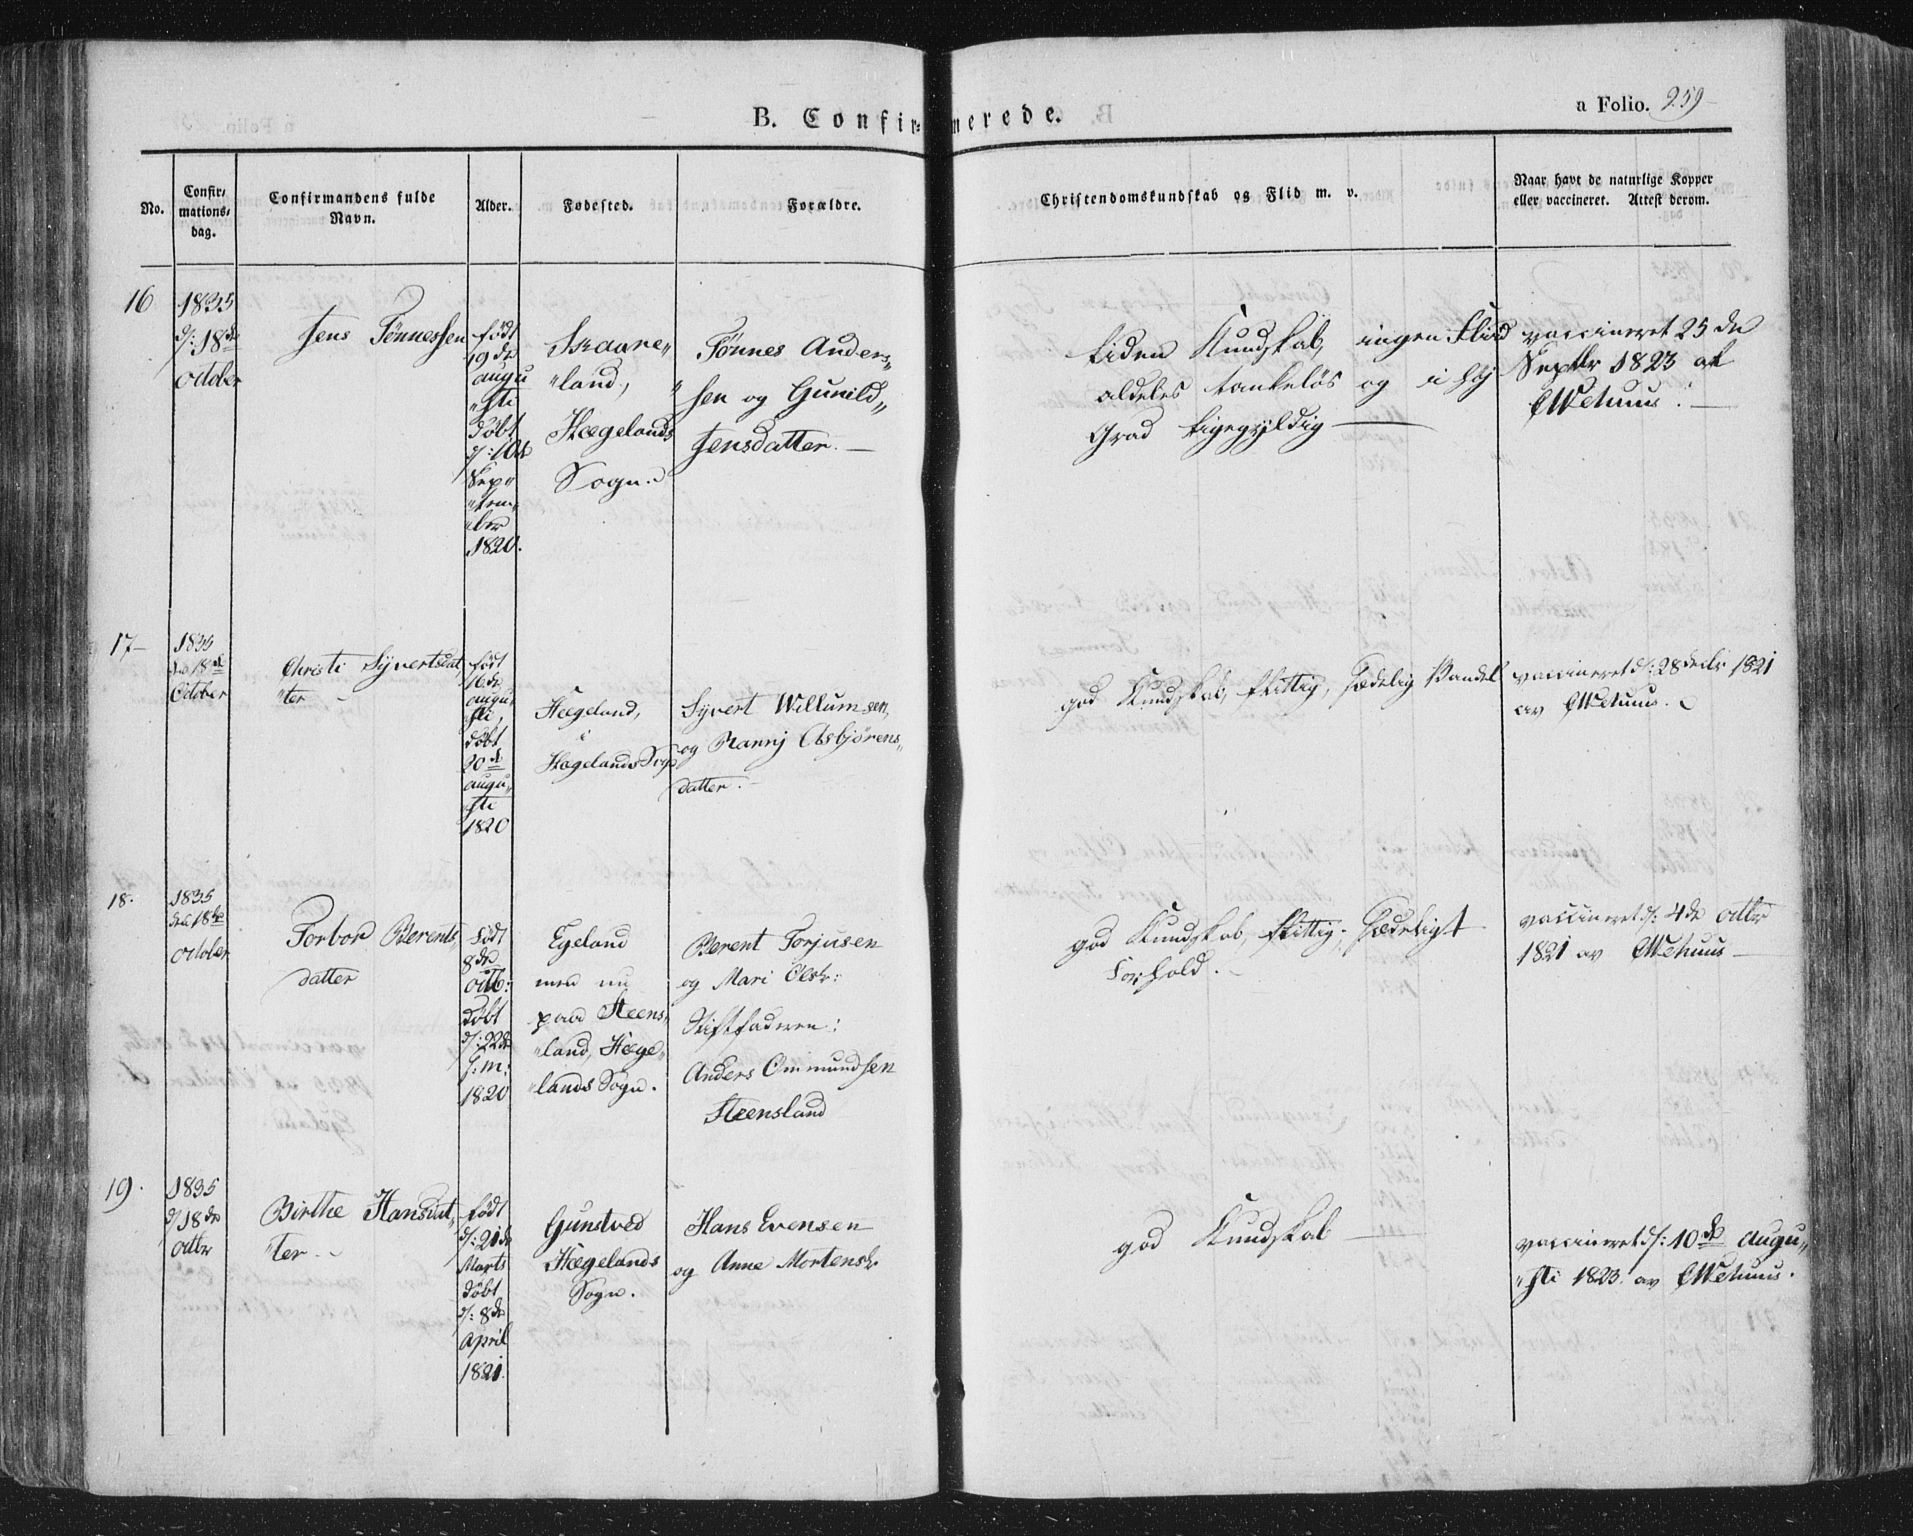 a Folio. 259
B. Confirmerede.
No.
Confir-
mations-
dag.
Confirmandens fulde
Navn.
Alder.
Fødested.
Forældre.
Christendomskundskab og Flid m. v.
Naar havt de naturlige Kopper
eller vaccineret. Attest derom.
16
1835
d/: 18de
October
Jens Tønnessen
født
19de
augu
"sti
døbt
d/: 10de
Sep"
"tem"
"ber
1820.
Skaare"
"land,
Hægelands
Sogn.
Tønnes Anders"
sen og Gunild"
Jensdatter. —
liden Kundskab, ingen Fliid
aldeles tankeløs og i høj
Grad ligegyldig —
vaccineret 25 de
Septbr 1823 af
—
17 —
1835
den 18de
October
Christi Syvertsdat"
"ter —
født
16de
augu"
"sti,
døbt
20de
augu"
"sti
1820
Hægeland,
i
Hægelands Sogn
Syvert Willumsen,
og Rannj Asbjørens"
datter. —
god Kundskab, flittig, sædelig Vandel
vaccineret d/: 28 decbr 1821
av
18.
1835
den 18de
October
Torbor Berents"
datter
født
8de
octb:
døbt
d/: 22de
s: m:
1820
Egeland
men nu
paa Steens"
"land, Hæge"
"lands Sogn.
Berent Torjusen
og Mari Olsdr:
Stiffaderen:
Anders Ommundsen
Steensland
god Kundskab, flittig, sædeligt
Forhold. —
vaccineret d/: 4de octbr
1821 av
19.
1835
d/ 18de
octbr
Birthe Hansdat"
"ter. —
født
d/: 21de
Marts
døbt
d/: 8de
April
1821.
Gunstved
Hægelands
Sogn.
Hans Evensen
og Anne Mortensdr.
god Kundskab —
vaccineret d/: 10de augu"
"sti 1823 av